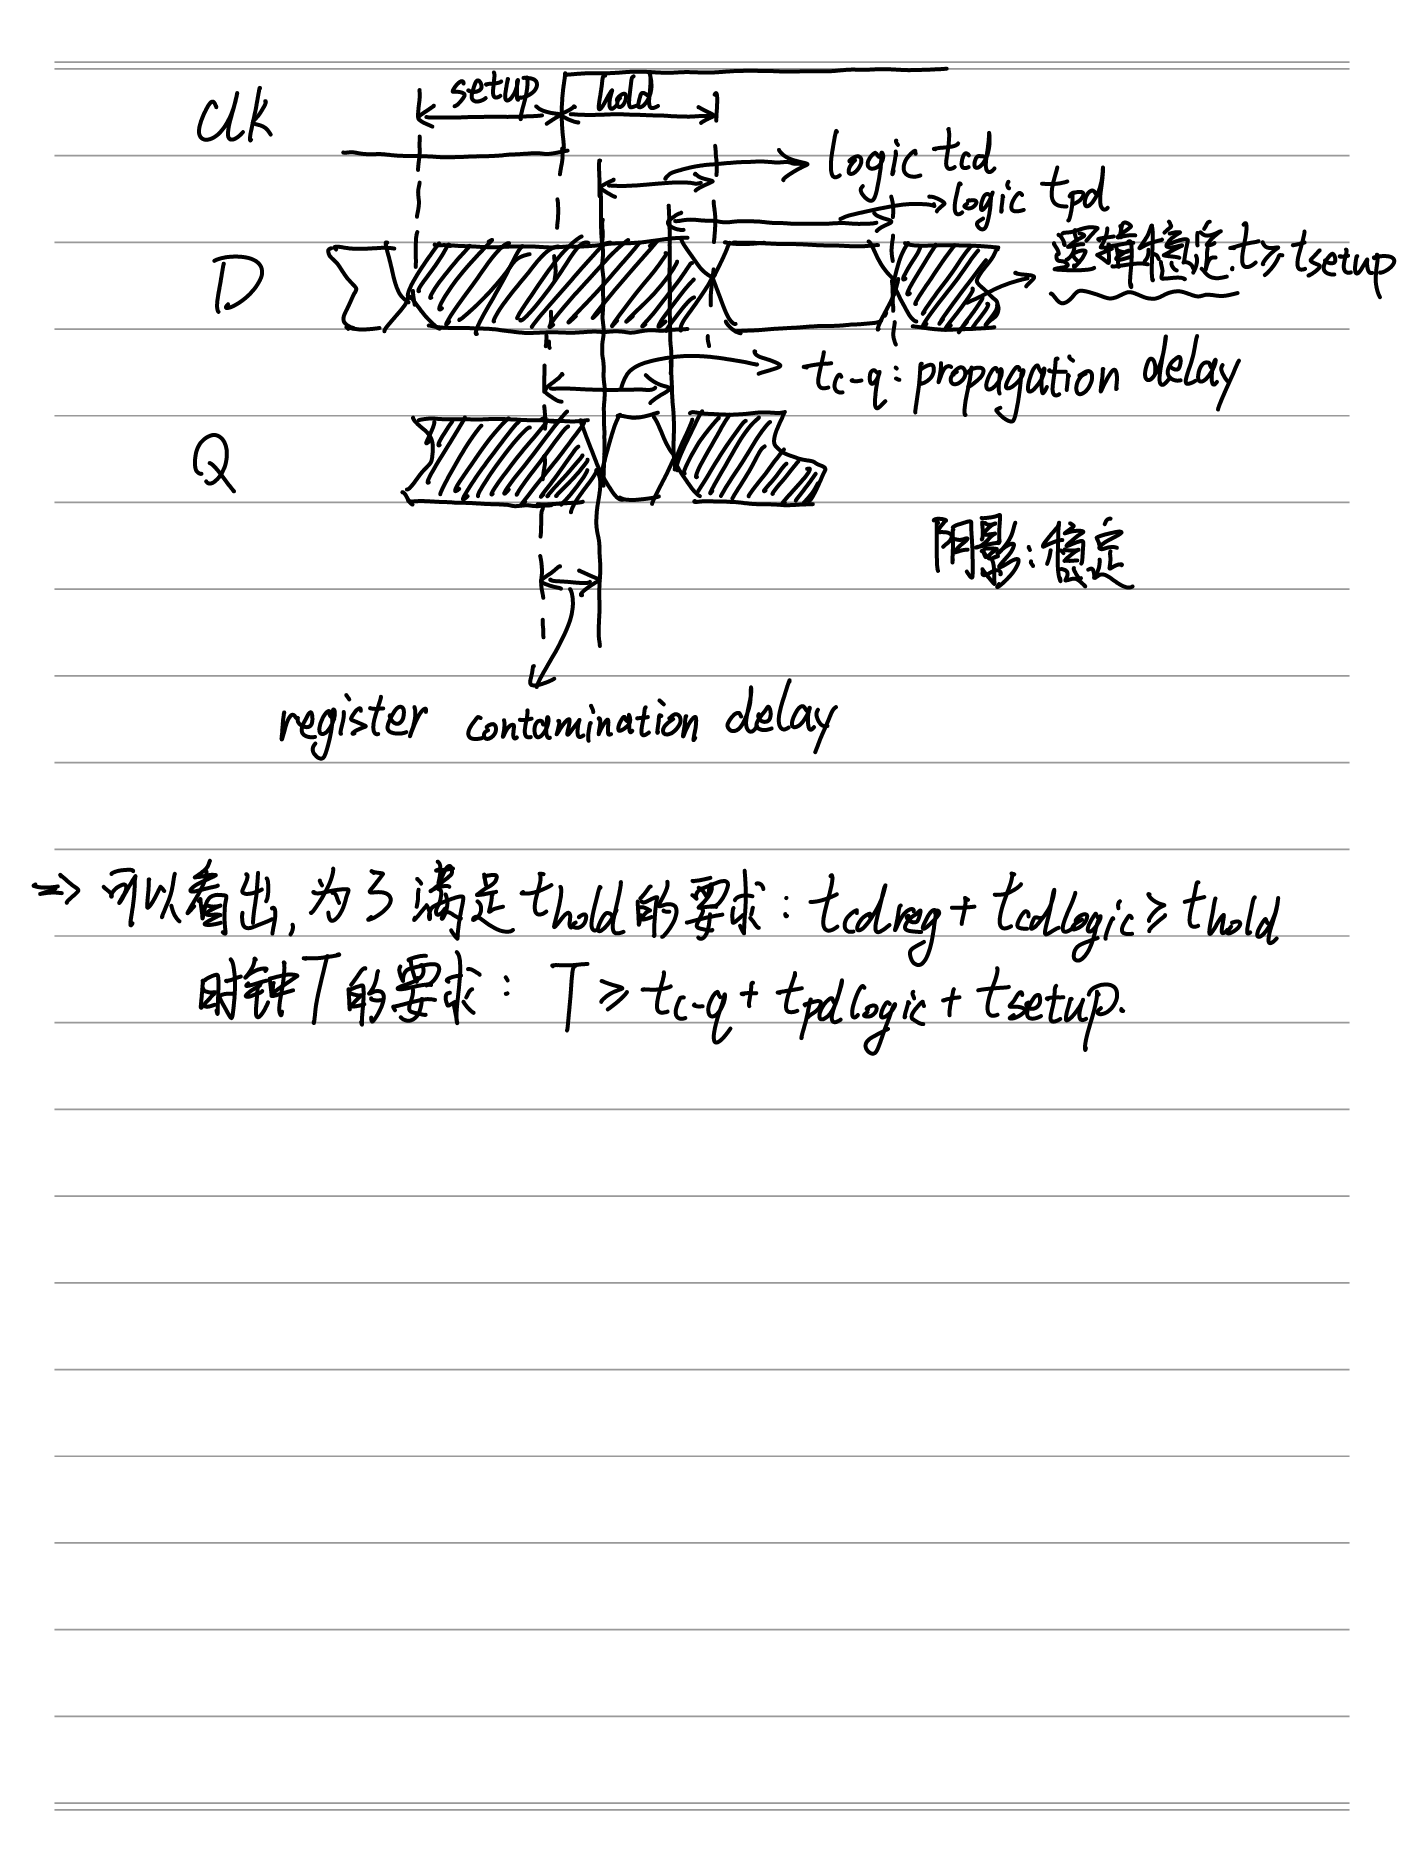 clk setup hold
logic tcd
logic tpd
D 逻辑稳定.t≥tsetup
tc-q: propagation delay
Q
阴影:稳定
register contamination delay
=> 可以看出,为了满足thold的要求: tcdreg + tcdlogic ≥ thold
时钟T的要求: T ≥ tc-q + tpdlogic + tsetup.